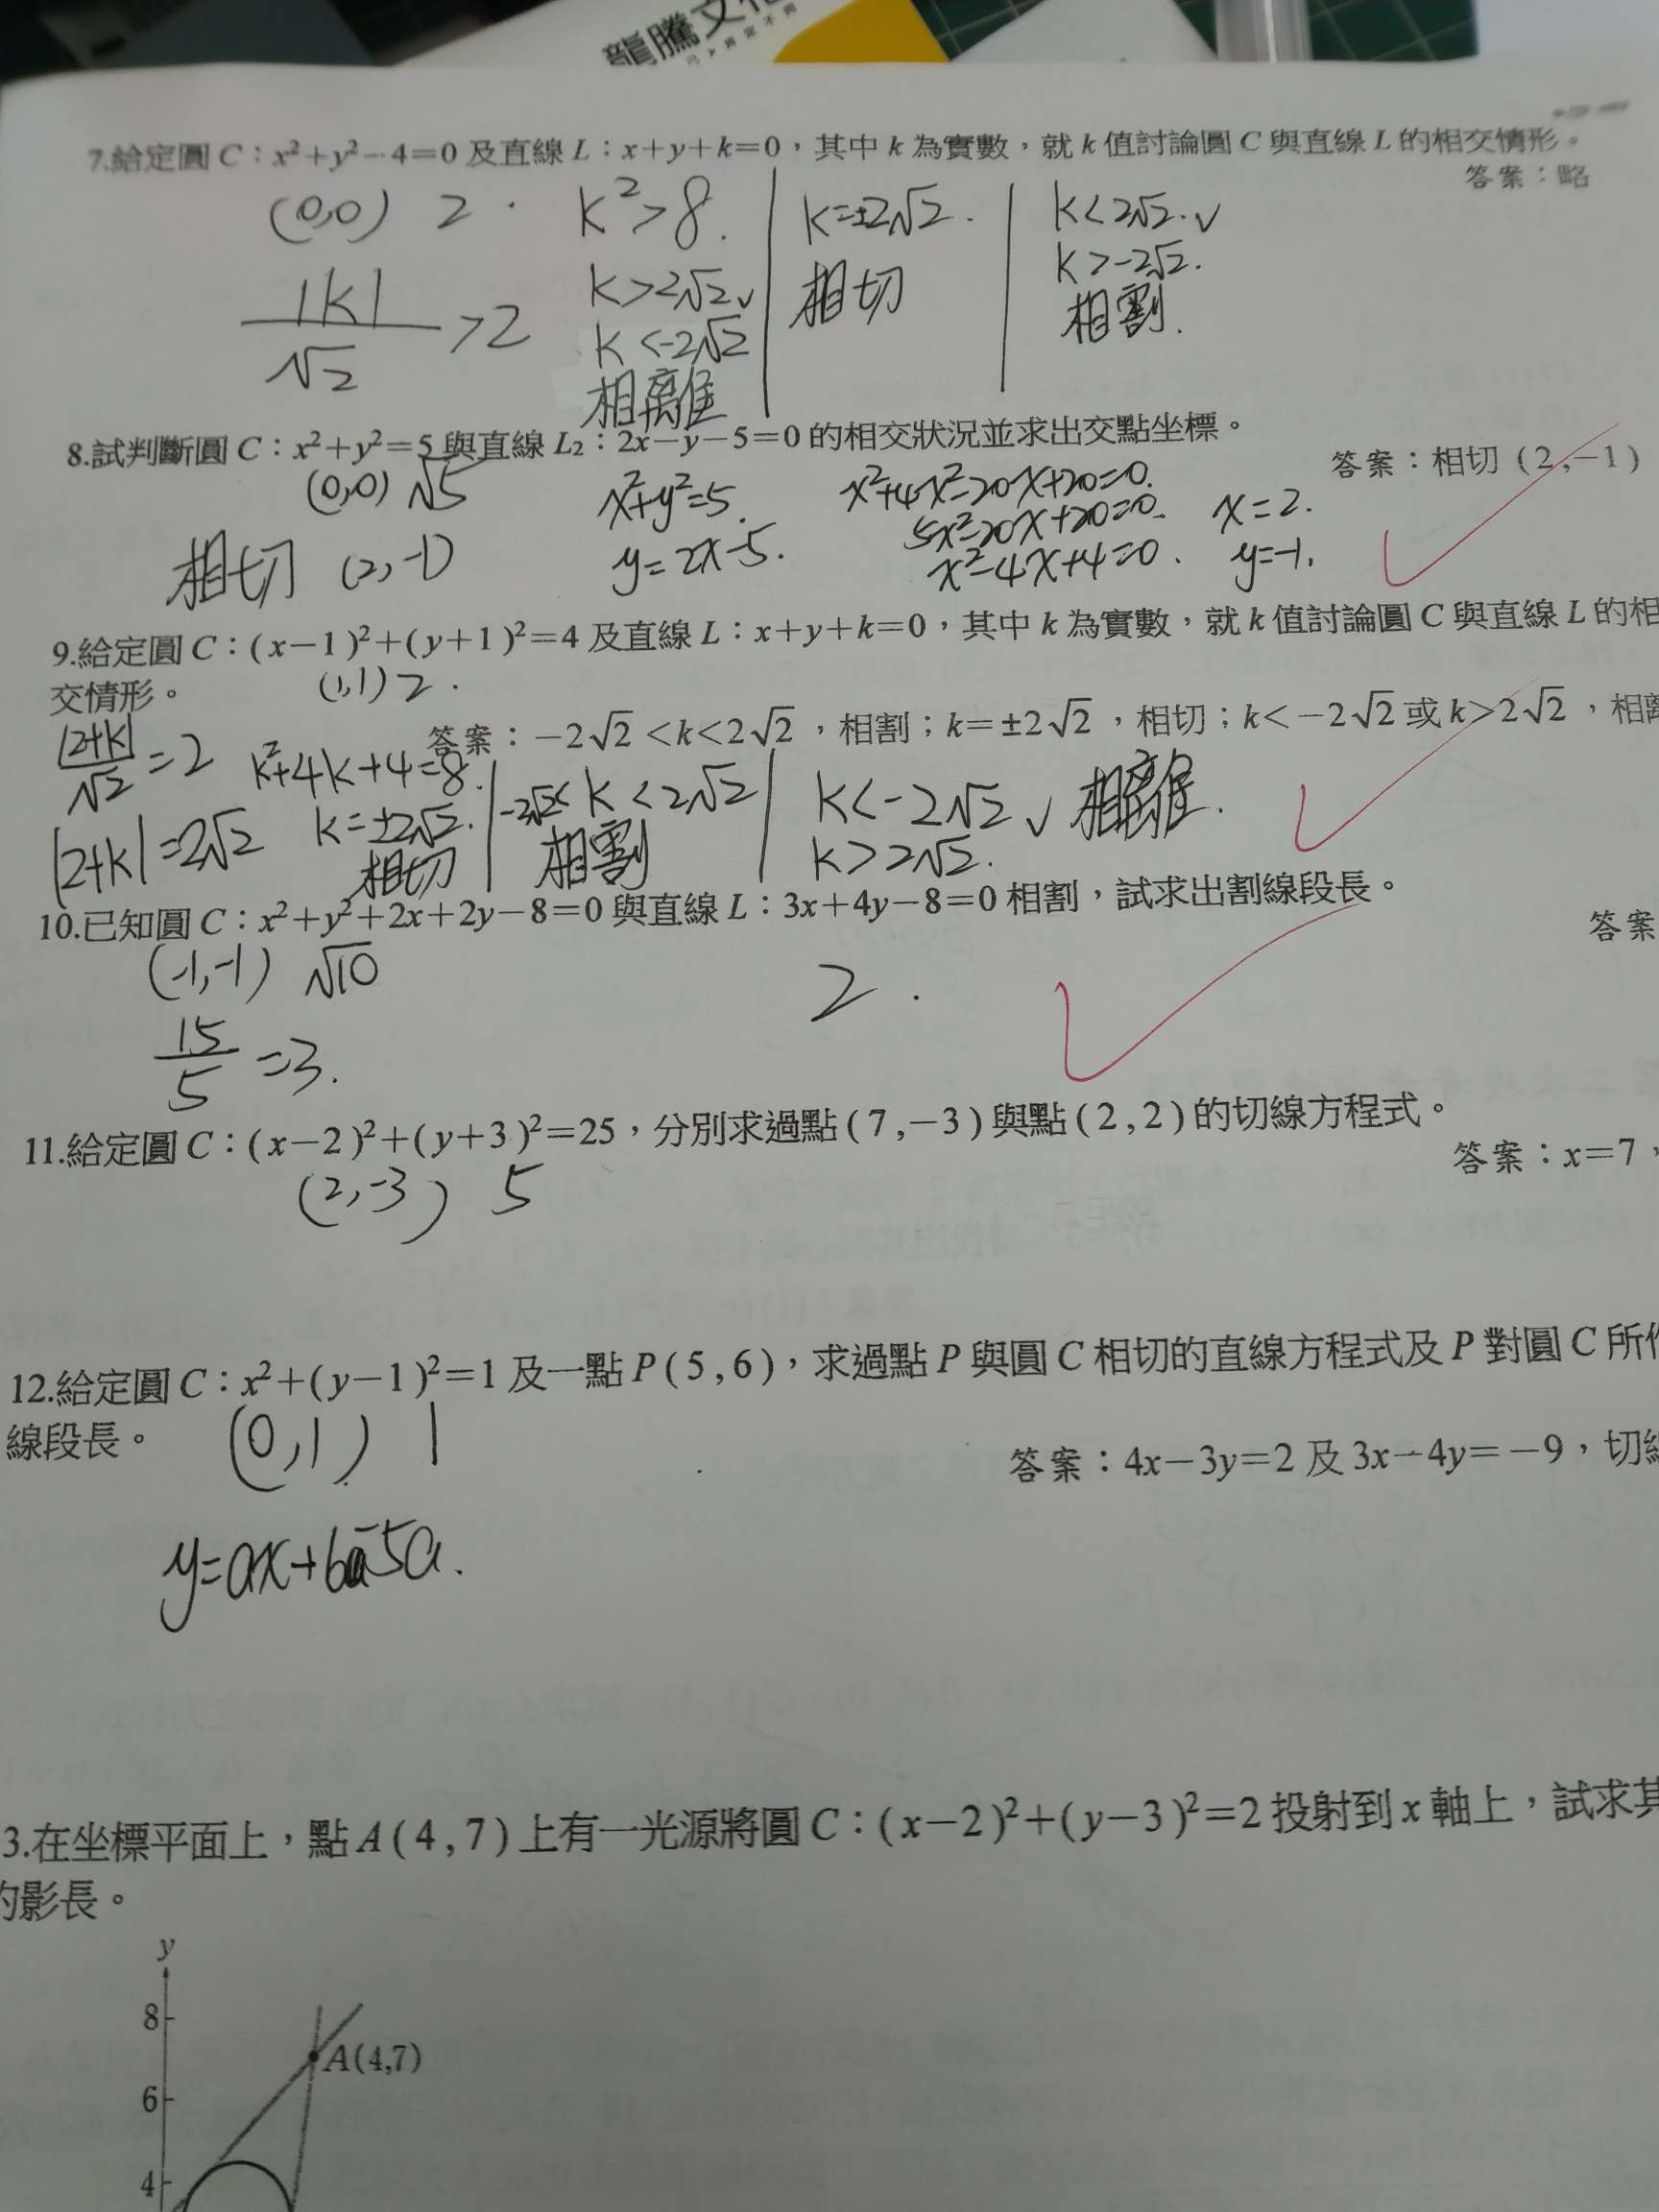 龍騰文化
7.給定圓 C：x²+y²−4=0 及直線 L：x+y+k=0，其中 k 為實數，就 k 值討論圓 C 與直線 L 的相交情形。
答案：略
(0,0) 2 .
|k|/√2 >2
k²>8.
k>2√2
k<-2√2
相離
k=±2√2.
相切
k<2√2.
k>-2√2.
相割.
8.試判斷圓 C：x²+y²=5 與直線 L₂：2x−y−5=0 的相交狀況並求出交點坐標。
答案：相切 (2,−1)
(0,0) √5
相切 (2,-1)
x²+y²=5.
y=2x-5.
x²+4x²-20x+20=0.
5x²-20x+20=0.
x²-4x+4=0.
x=2.
y=-1.
9.給定圓 C：(x−1)²+(y+1)²=4 及直線 L：x+y+k=0，其中 k 為實數，就 k 值討論圓 C 與直線 L 的相
交情形。
(1,1) 2.
答案：−2√2<k<2√2，相割；k=±2√2，相切；k<−2√2或k>2√2，相離
|2+k|/√2 =2
|2+k|=2√2
k²+4k+4=8.
k=±2√2.
相切
-2√2< k <2√2
相割
k<-2√2 相離.
k>2√2.
10.已知圓 C：x²+y²+2x+2y−8=0 與直線 L：3x+4y−8=0 相割，試求出割線段長。
答案
(-1,-1) √10
15/5 =3.
2.
11.給定圓 C：(x−2)²+(y+3)²=25，分別求過點(7,−3)與點(2,2)的切線方程式。
答案：x=7，
(2,-3) 5
12.給定圓 C：x²+(y−1)²=1 及一點 P(5,6)，求過點 P 與圓 C 相切的直線方程式及 P 對圓 C 所作
線段長。
(0,1) 1
答案：4x−3y=2 及 3x−4y=−9，切線
y=ax+6-5a.
3.在坐標平面上，點 A(4,7)上有一光源將圓 C：(x−2)²+(y−3)²=2 投射到 x 軸上，試求其
的影長。
y
8
A(4,7)
6
4